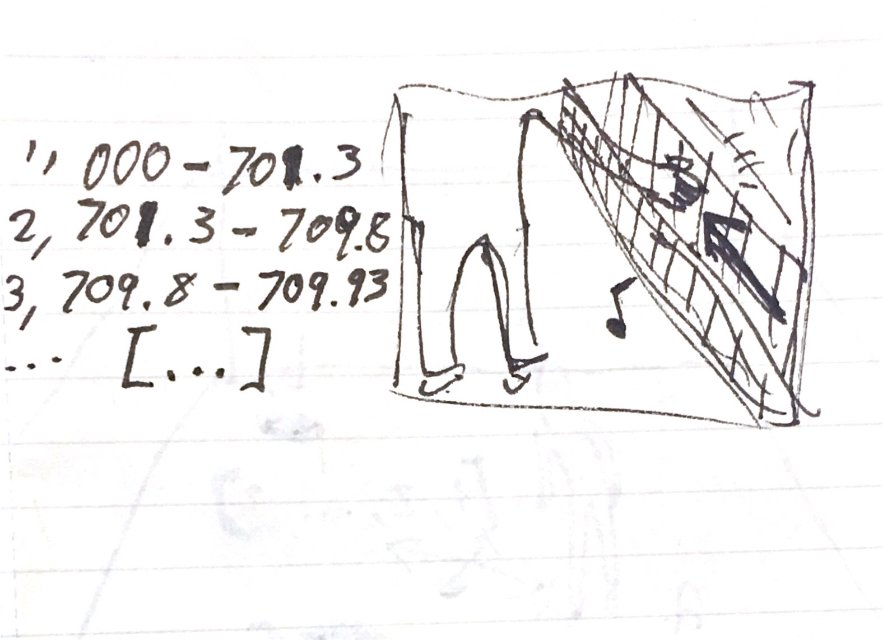 1, 000 - 701.3
2, 701.3 - 709.8
3, 709.8 - 709.93
... [...]